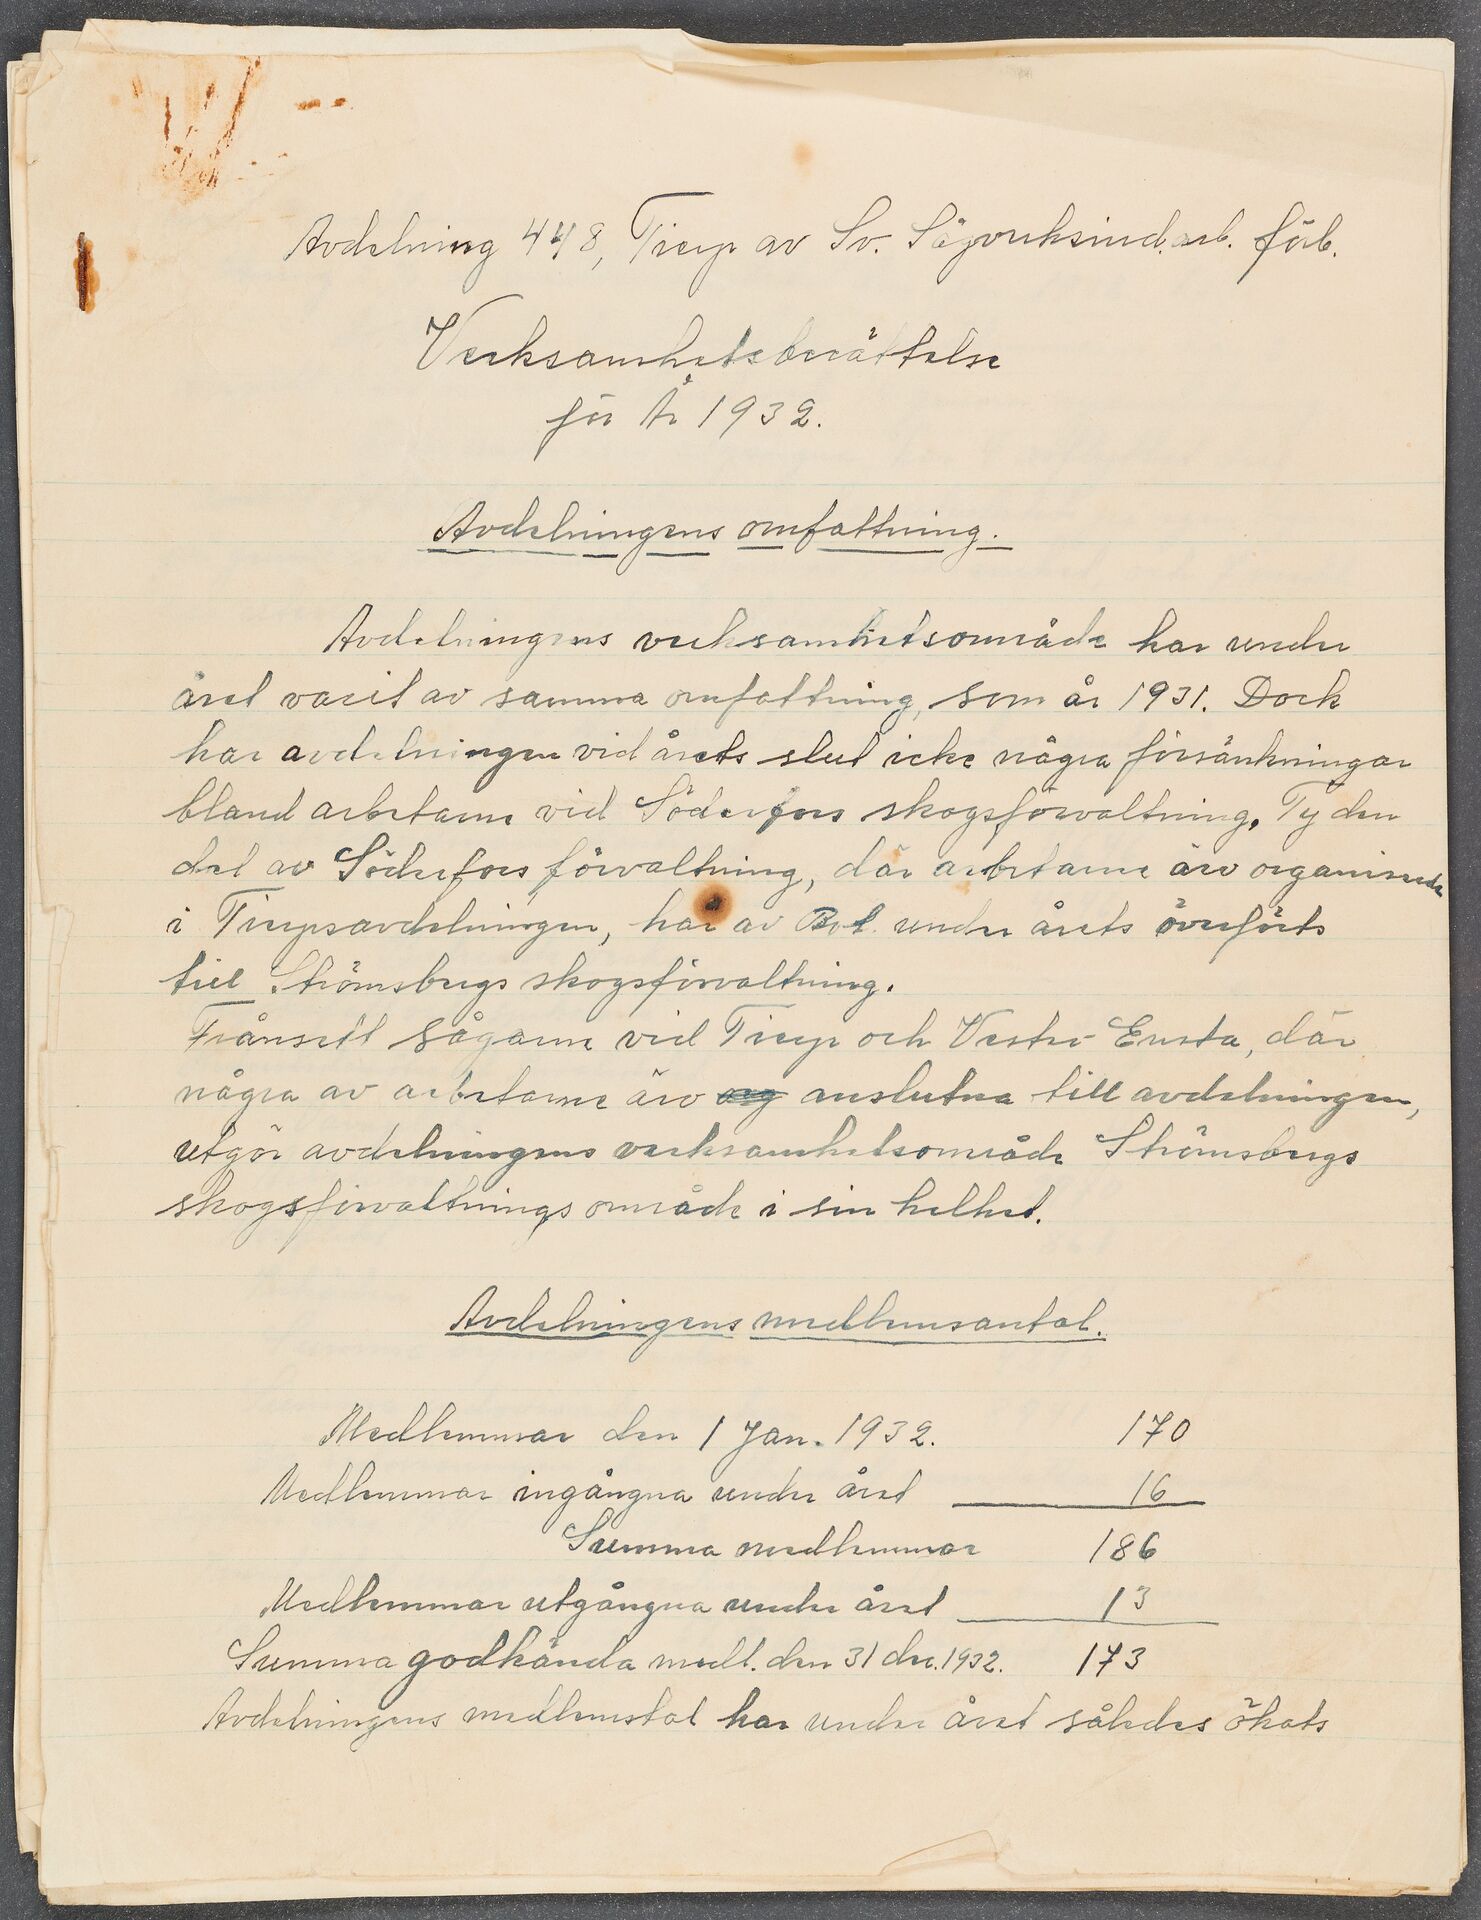 Avdelning 448, Tierp av Sv. Sågverksind.arb. förb.
Verksamhetsberättelse
för År 1932.
Avdelningens omfattning.
Avdelningens verksamhetsområde har under
året varit av samma omfattning, som år 1931. Dock
har avdelningen vid årets slut icke några försänkningar
bland arbetarne vid Söderfors skogsförvaltning. Ty den
del av Söderfors förvaltning, där arbetarne äro organiserade
i Tierpsavdelningen, har av Bol. under årets överförts
till Strömsbergs skogsförvaltning.
Frånsett sågarne vid Tierp och Vester-Ensta, där
några av arbetarne äro anslutna till avdelningen,
utgör avdelningens verksamhetsområde Strömsbergs
skogsförvaltnings område i sin helhet.
Avdelningens medlemsantal.
Medlemmar den 1 Jan. 1932. 170
Medlemmar ingångna under året 16
Summa medlemmar 186
Medlemmar utgångna under året 13
Summa godkända medl. den 31 dec. 1932. 173
Avdelningens medlemstal har under året således ökats